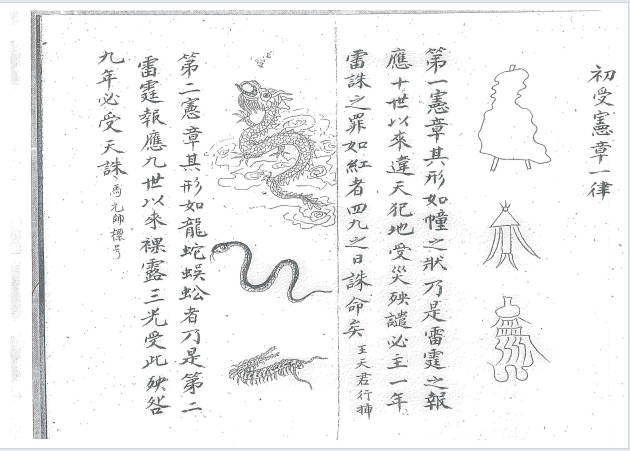 初受憲章一律
第一憲章其形如幢之狀乃是雷霆之報
應十世以來違天犯地受災殃譴必主一年
雷誅之罪如紅者四九之日誅命矣 王天君行
第二憲章其形如龍蛇蜈蚣者乃是第二
雷霆報應九世以來裸露三光受此殃咎
九年必受天誅 馬元帥標号